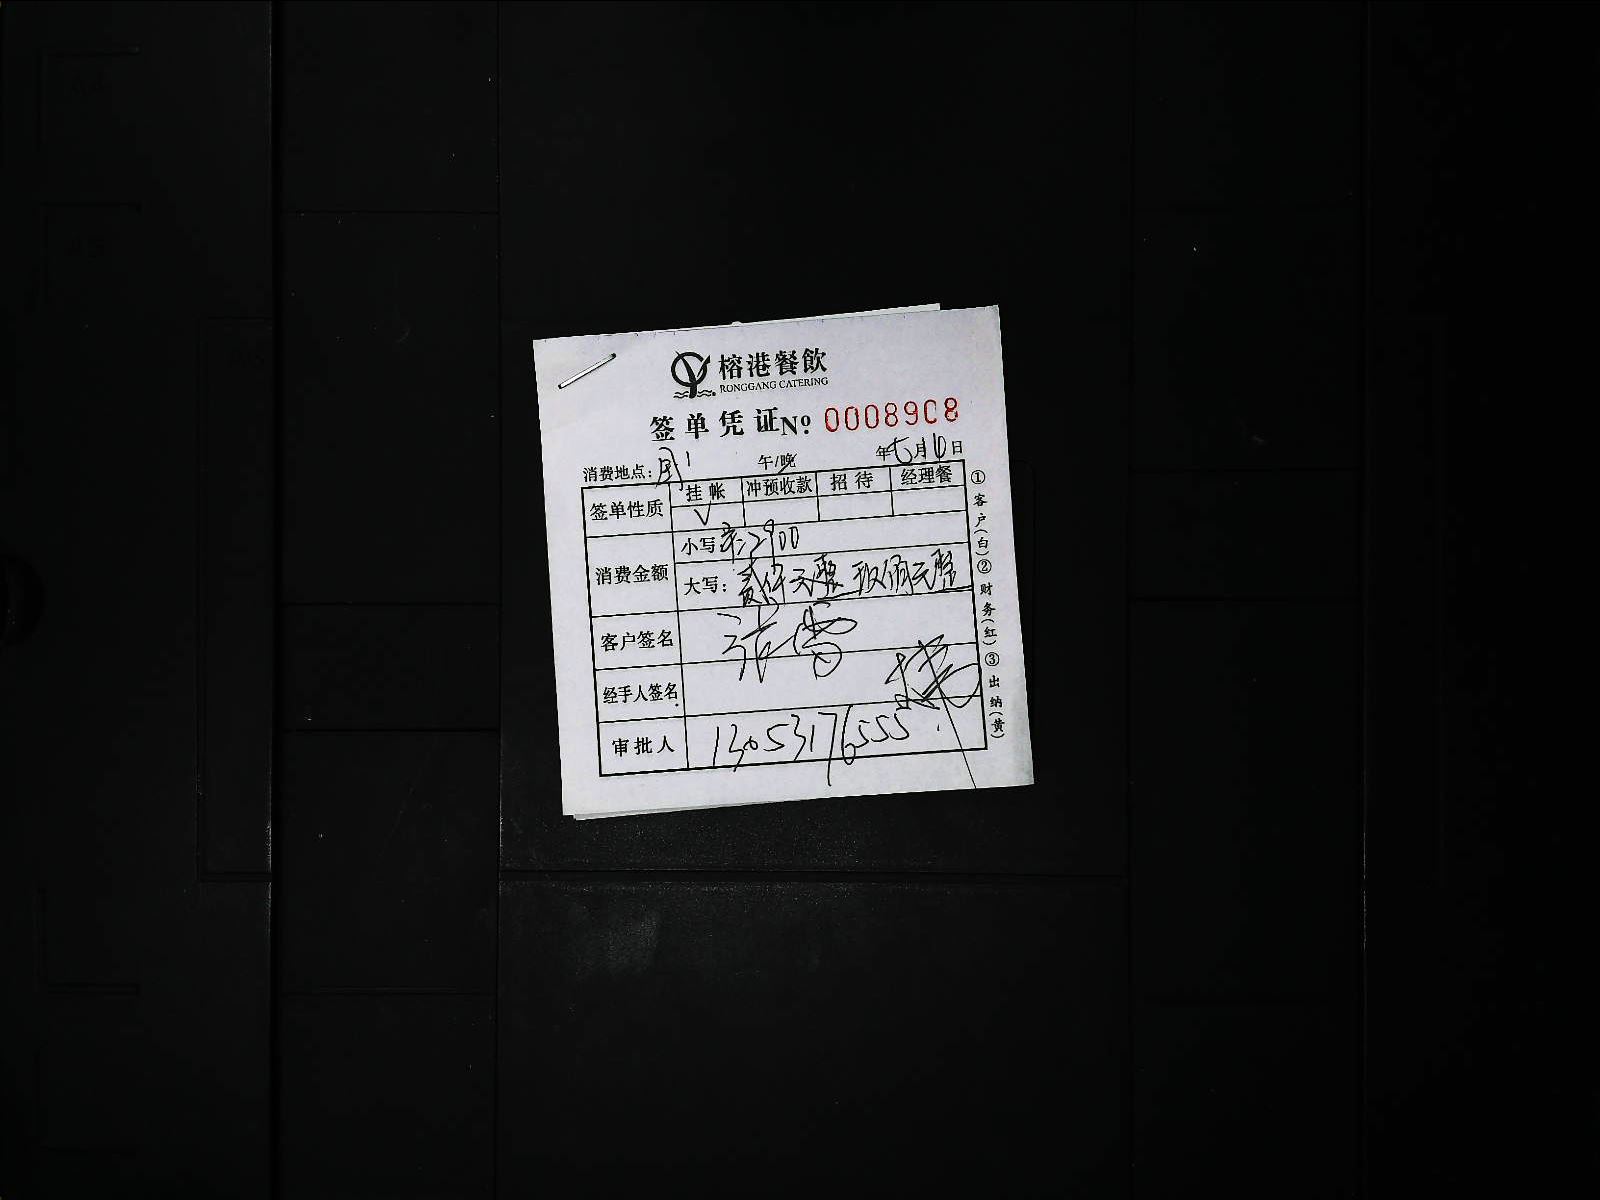 榕港餐飲
RONGGANG CATERING
签单凭证 No: 0008908
消费地点: 午/晚 年七月10日
签单性质 挂帐 冲预收款 招待 经理餐
√
消费金额 小写 ¥:2900
大写: 贰仟 元整
客户签名 张雷
经手人签名
审批人 13053176555
①客户(白)②财务(红)③出纳(黄)